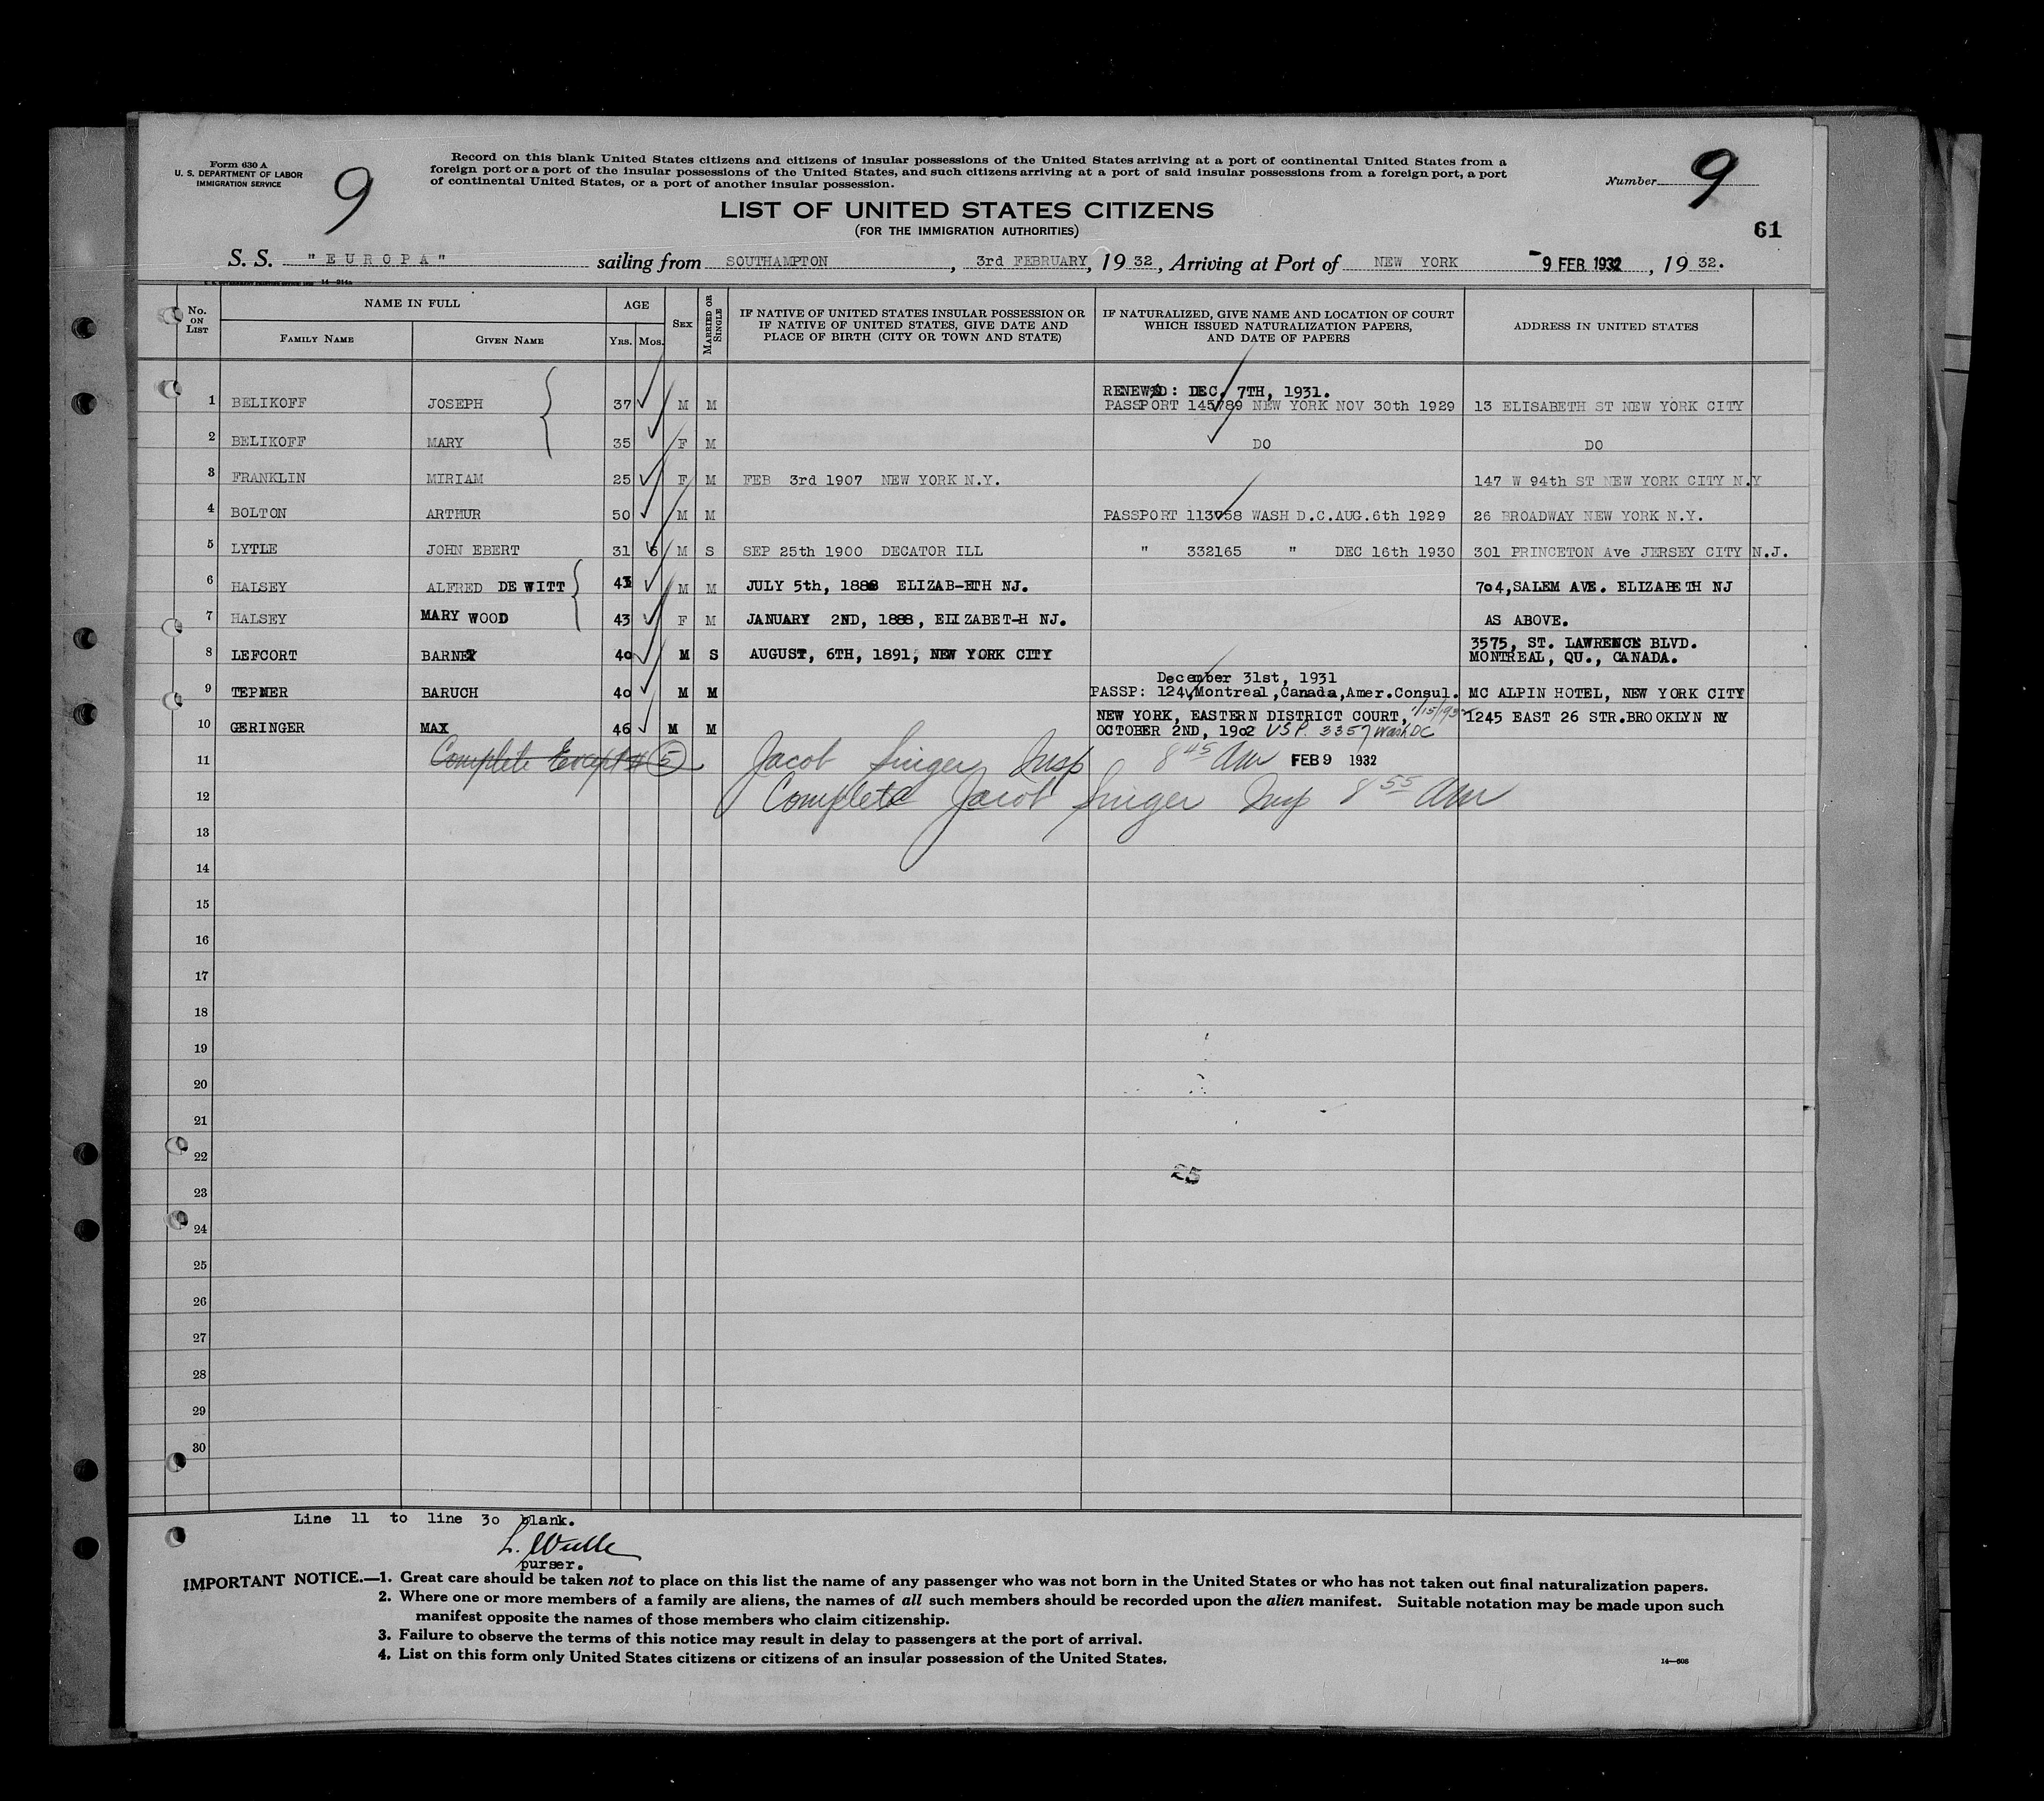 Form 630 A
U. S. DEPARTMENT OF LABOR
IMMIGRATION SERVICE
9
Record on this blank United States citizens and citizens of insular possessions of the United States arriving at a port of continental United States from a
foreign port or a port of the insular possessions of the United States, and such citizens arriving at a port of said insular possessions from a foreign port, a port
of continental United States, or a port of another insular possession.
Number 9
LIST OF UNITED STATES CITIZENS
(FOR THE IMMIGRATION AUTHORITIES)
61
S. S. "EUROPA" sailing from SOUTHAMPTON, 3rd FEBRUARY, 1932, Arriving at Port of NEW YORK 9 FEB 1932, 1932.
No. ON LIST NAME IN FULL FAMILY NAME GIVEN NAME AGE YRS. MOS. SEX MARRIED OR SINGLE IF NATIVE OF UNITED STATES INSULAR POSSESSION OR IF NATIVE OF UNITED STATES, GIVE DATE AND PLACE OF BIRTH (CITY OR TOWN AND STATE) IF NATURALIZED, GIVE NAME AND LOCATION OF COURT WHICH ISSUED NATURALIZATION PAPERS, AND DATE OF PAPERS ADDRESS IN UNITED STATES
RENEWED: DEC. 7TH, 1931.
1 BELIKOFF JOSEPH 37 M M PASSPORT 145789 NEW YORK NOV 30th 1929 13 ELISABETH ST NEW YORK CITY
2 BELIKOFF MARY 35 F M DO DO
3 FRANKLIN MIRIAM 25 F M FEB 3rd 1907 NEW YORK N.Y. 147 W 94th ST NEW YORK CITY N.Y
4 BOLTON ARTHUR 50 M M PASSPORT 113058 WASH D.C.AUG.6th 1929 26 BROADWAY NEW YORK N.Y.
5 LYTLE JOHN EBERT 31 6 M S SEP 25th 1900 DECATOR ILL " 332165 " DEC 16th 1930 301 PRINCETON Ave JERSEY CITY N.J.
6 HALSEY ALFRED DE WITT 43 M M JULY 5th, 1888 ELIZAB-ETH NJ. 704,SALEM AVE. ELIZABETH NJ
7 HALSEY MARY WOOD 43 F M JANUARY 2ND, 1888, ELIZABET-H NJ. AS ABOVE.
3575, ST. LAWRENCE BLVD.
8 LEFCORT BARNEY 40 M S AUGUST, 6TH, 1891, NEW YORK CITY MONTREAL, QU., CANADA.
December 31st, 1931
9 TEPNER BARUCH 40 M M PASSP: 124, Montreal,Canada,Amer.Consul. MC ALPIN HOTEL, NEW YORK CITY
NEW YORK, EASTERN DISTRICT COURT,
10 GERINGER MAX 46 M M OCTOBER 2ND, 1902 USP. 3357 Wash DC 1245 EAST 26 STR.BROOKLYN NY
11 Complete Except # 5 Jacob Singer Insp 8 45 Am FEB 9 1932
12 Complete Jacob Singer Insp 8 55 Am
13
14
15
16
17
18
19
20
21
22
25
23
24
25
26
27
28
29
30
Line 11 to line 30 blank.
purser.
IMPORTANT NOTICE.—1. Great care should be taken not to place on this list the name of any passenger who was not born in the United States or who has not taken out final naturalization papers.
2. Where one or more members of a family are aliens, the names of all such members should be recorded upon the alien manifest. Suitable notation may be made upon such
manifest opposite the names of those members who claim citizenship.
3. Failure to observe the terms of this notice may result in delay to passengers at the port of arrival.
4. List on this form only United States citizens or citizens of an insular possession of the United States.
14—608